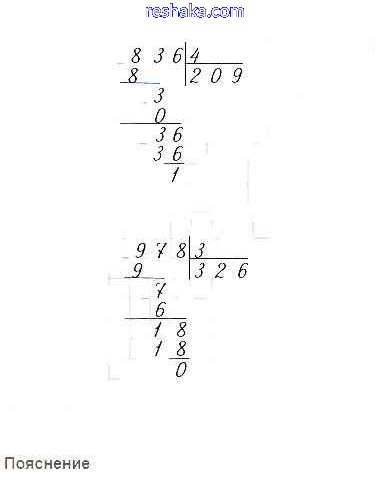 reshaka.com
8 3 6 4
8 2 0 9
3
0
3 6
3 6
1
9 7 8 3
9 3 2 6
7
6
1 8
1 8
0
Пояснение